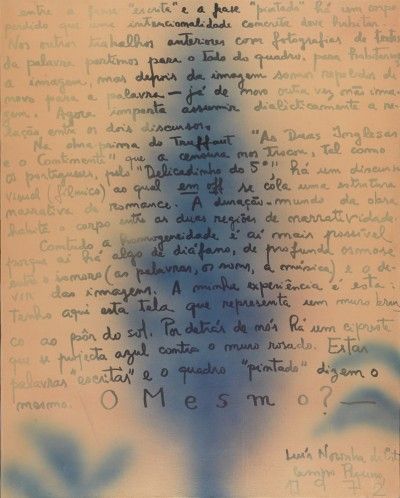 entre a frase "escrita" e a frase "pintada" há um corpo
perdido que uma intencionalidade concreta deve habitar.
Nos outros trabalhos anteriores com fotografias de textos
da palavra partimos para o todo do quadro, para habitarmos
a imagem, mas depois da imagem somos repelidos de
novo para a palavra — já de novo outra vez não ima-
gem. Agora importa assumir dialecticamente a re-
lação entre os dois discursos.
Na obra-prima do Truffaut "As Duas Inglesas
e o Continente" que a censura nos trocou, tal como
os portugueses, pelo "Delicadinho do 5º", há um discurso
visual (fílmico) ao qual em off se cola uma estrutura
narrativa de romance. A duração-mundo da obra
habita o corpo entre as duas regiões de narratividade.
Contudo a homogeneidade é aí mais possível
porque aí há algo de diáfano, de profunda osmose
entre o sonoro (as palavras, os sons, a música) e o de-
vir das imagens. A minha experiência é esta:
Tenho aqui esta tela que representa um muro bran
co ao pôr do sol. Por detrás de nós há um cipreste
que se projecta azul contra o muro rosado. Estas
palavras "escritas" e o quadro "pintado" dizem o
mesmo. O Mesmo? —
Luís Noronha da
Campo Pequeno
1972